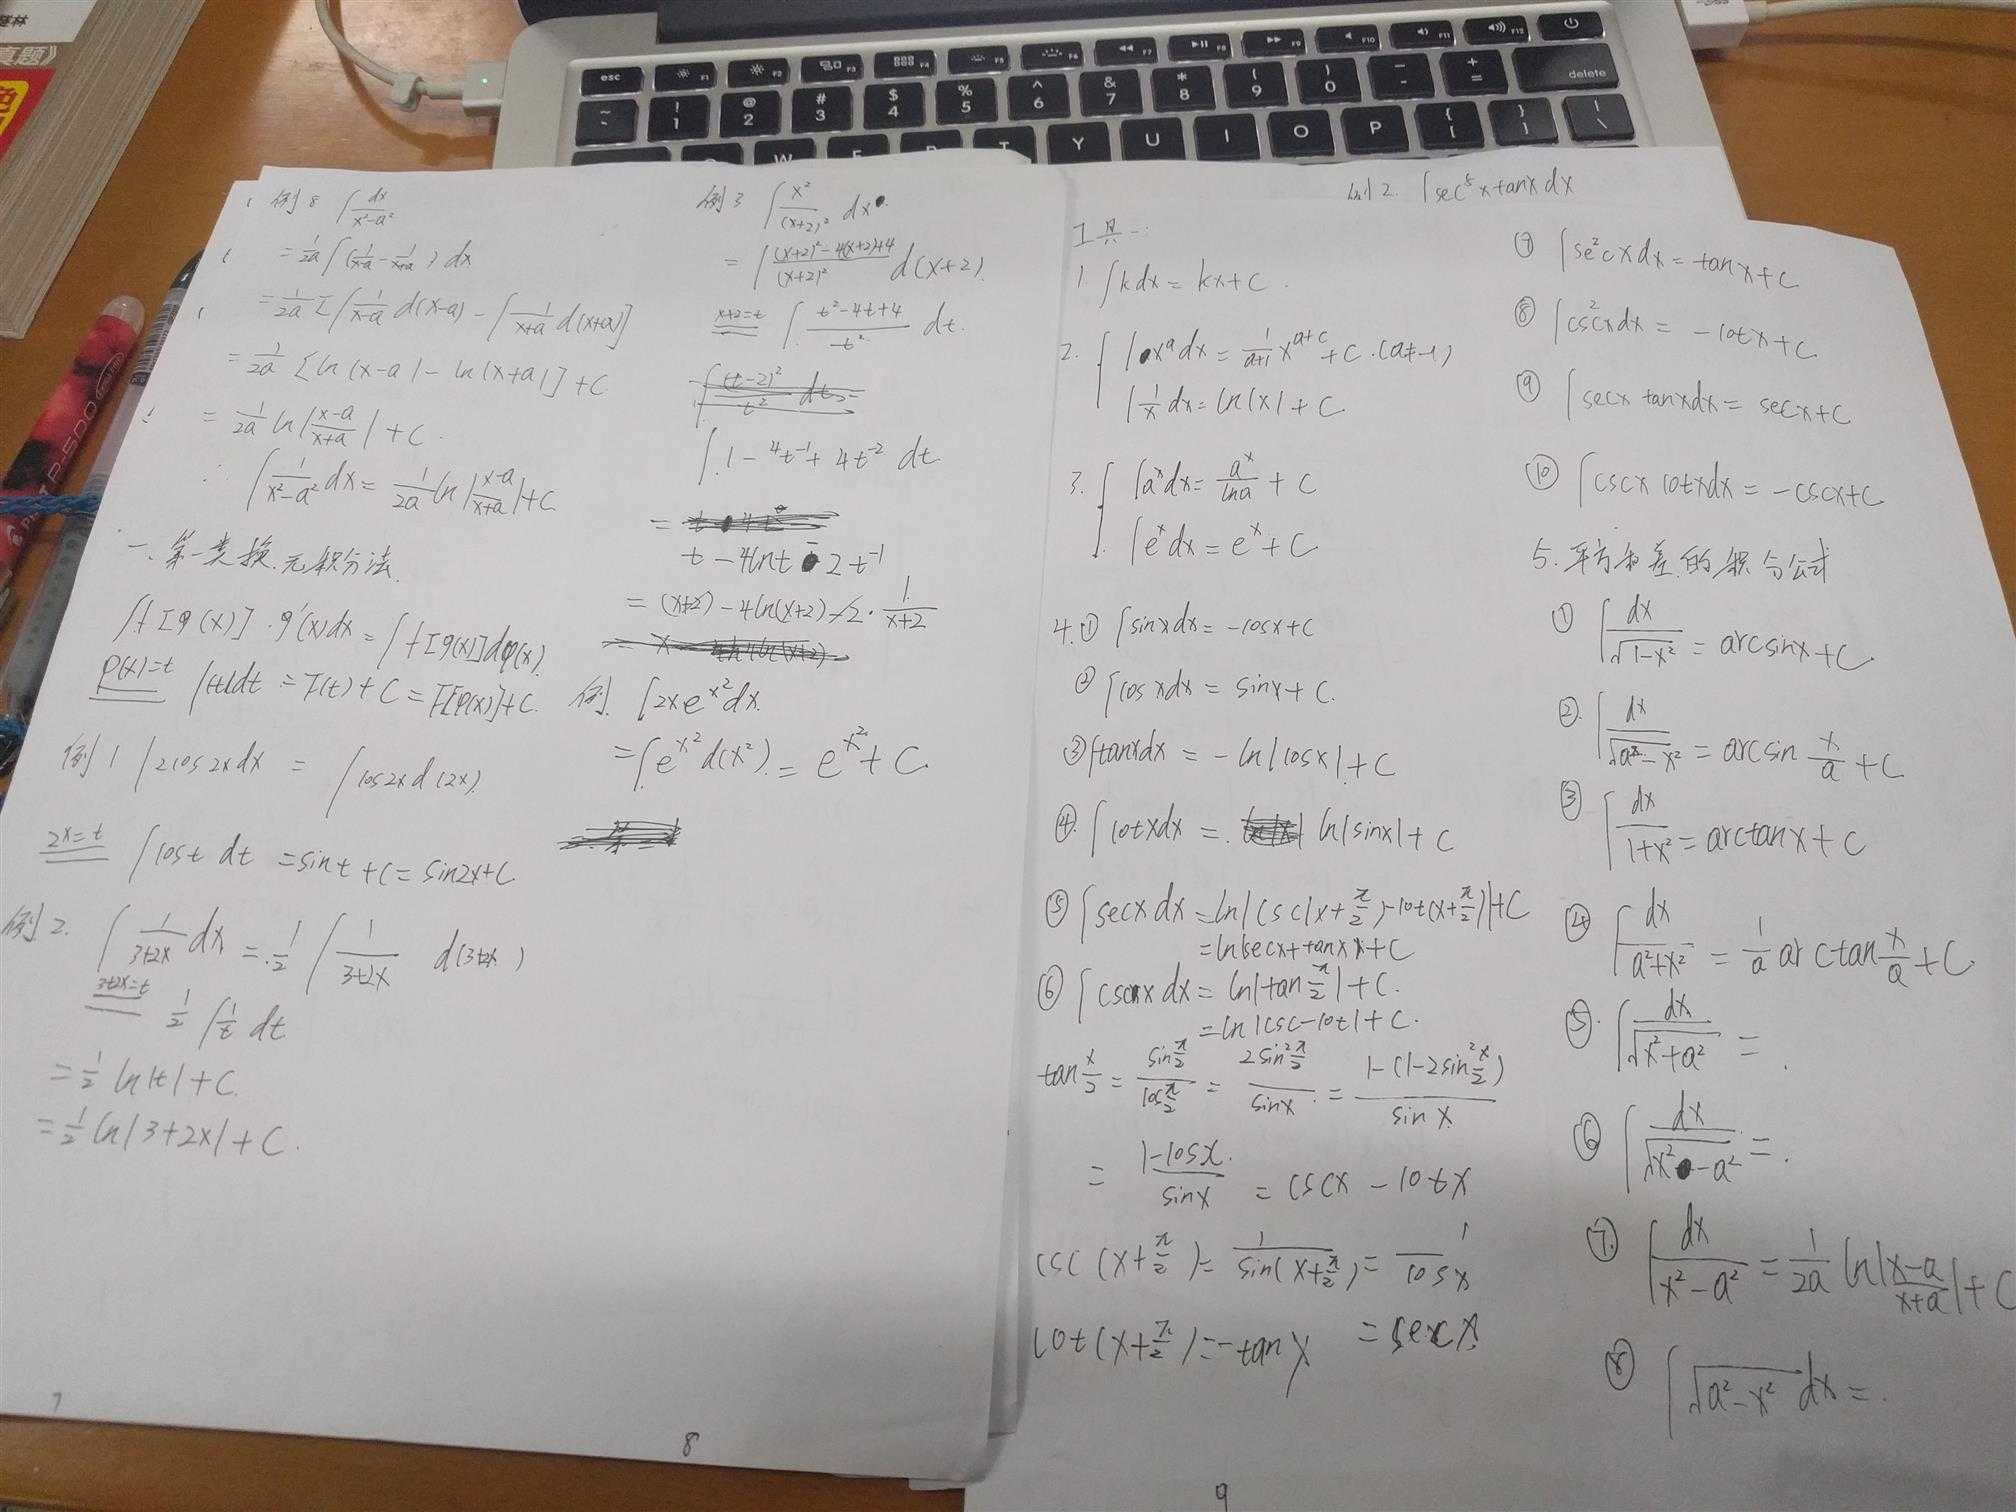 真题》
esc F1 F2 F3 F4 F5 F6 F7 F8 F9 F10 F11 F12
~ ! 1 @ 2 # 3 $ 4 % 5 ^ 6 & 7 * 8 ( 9 ) 0 - + = delete
W T Y U I O P { [ } ] | \
P-500
例8 ∫dx/(x²-a²)
=1/2a ∫(1/(x-a) - 1/(x+a)) dx
=1/2a [∫1/(x-a) d(x-a) - ∫1/(x+a) d(x+a)]
=1/2a [ln|x-a| - ln|x+a|] + C
=1/2a ln|(x-a)/(x+a)| + C.
∴ ∫1/(x²-a²) dx = 1/2a ln|(x-a)/(x+a)| + C
一、第一类换元积分法
∫f[φ(x)]·φ'(x)dx = ∫f[φ(x)]dφ(x).
φ(x)=t ∫f(t)dt = F(t)+C = F[φ(x)]+C.
例1 ∫2cos2xdx = ∫cos2xd(2x)
2x=t ∫cost dt =sint+C=sin2x+C
例2. ∫1/(3+2x) dx = 1/2 ∫1/(3+2x) d(3+2x)
3+2x=t 1/2 ∫1/t dt
=1/2 ln|t|+C.
=1/2 ln|3+2x|+C.
7
例3 ∫x²/(x+2)² dx
=∫((x+2)²-4(x+2)+4)/(x+2)² d(x+2).
x+2=t ∫(t²-4t+4)/t² dt.
∫(t-2)²/t² dt=
∫1-4t⁻¹+4t⁻² dt
=
t-4lnt-2t⁻¹
=(x+2)-4ln(x+2)-2·1/(x+2)
例. ∫2xe^x² dx.
=∫e^x² d(x²).=e^x²+C.
8
例2. ∫sec⁵xtanxdx
工具一
1 ∫kdx=kx+C.
2. ∫x^a dx=1/(a+1) x^(a+C)+C.(a≠-1)
∫1/x dx=ln|x|+C.
3. ∫a^x dx=a^x/lna+C
∫e^x dx=e^x+C
4.① ∫sinxdx=-cosx+C
② ∫cosxdx=sinx+C.
③ ∫tanxdx=-ln|cosx|+C
④. ∫cotxdx=ln|sinx|+C
⑤ ∫secxdx=ln|csc(x+π/2)-cot(x+π/2)|+C
=ln|secx+tanx|+C
⑥ ∫cscxdx=ln|tan x/2|+C.
=ln|csc-cot|+C.
tan x/2 = sin x/2 / cos x/2 = 2sin² x/2 / sinx = (1-(1-2sin² x/2))/sinx
=(1-cosx)/sinx=cscx-cotx
csc(x+π/2)=1/sin(x+π/2)=1/cosx
cot(x+π/2)=-tanx =secx
⑦ ∫sec²xdx=tanx+C
⑧ ∫csc²xdx=-cotx+C
⑨ ∫secx tanxdx=secx+C
⑩ ∫cscx cotxdx=-cscx+C
5.平方和差的积分公式
① ∫dx/√(1-x²)=arcsinx+C.
②. ∫dx/√(a²-x²)=arcsin x/a+C
③ ∫dx/(1+x²)=arctanx+C
④ ∫dx/(a²+x²)=1/a arctan x/a+C
⑤. ∫dx/√(x²+a²)=.
⑥ ∫dx/√(x²-a²)=.
⑦. ∫dx/(x²-a²)=1/2a ln|(x-a)/(x+a)|+C
⑧ ∫√(a²-x²) dx=.
9